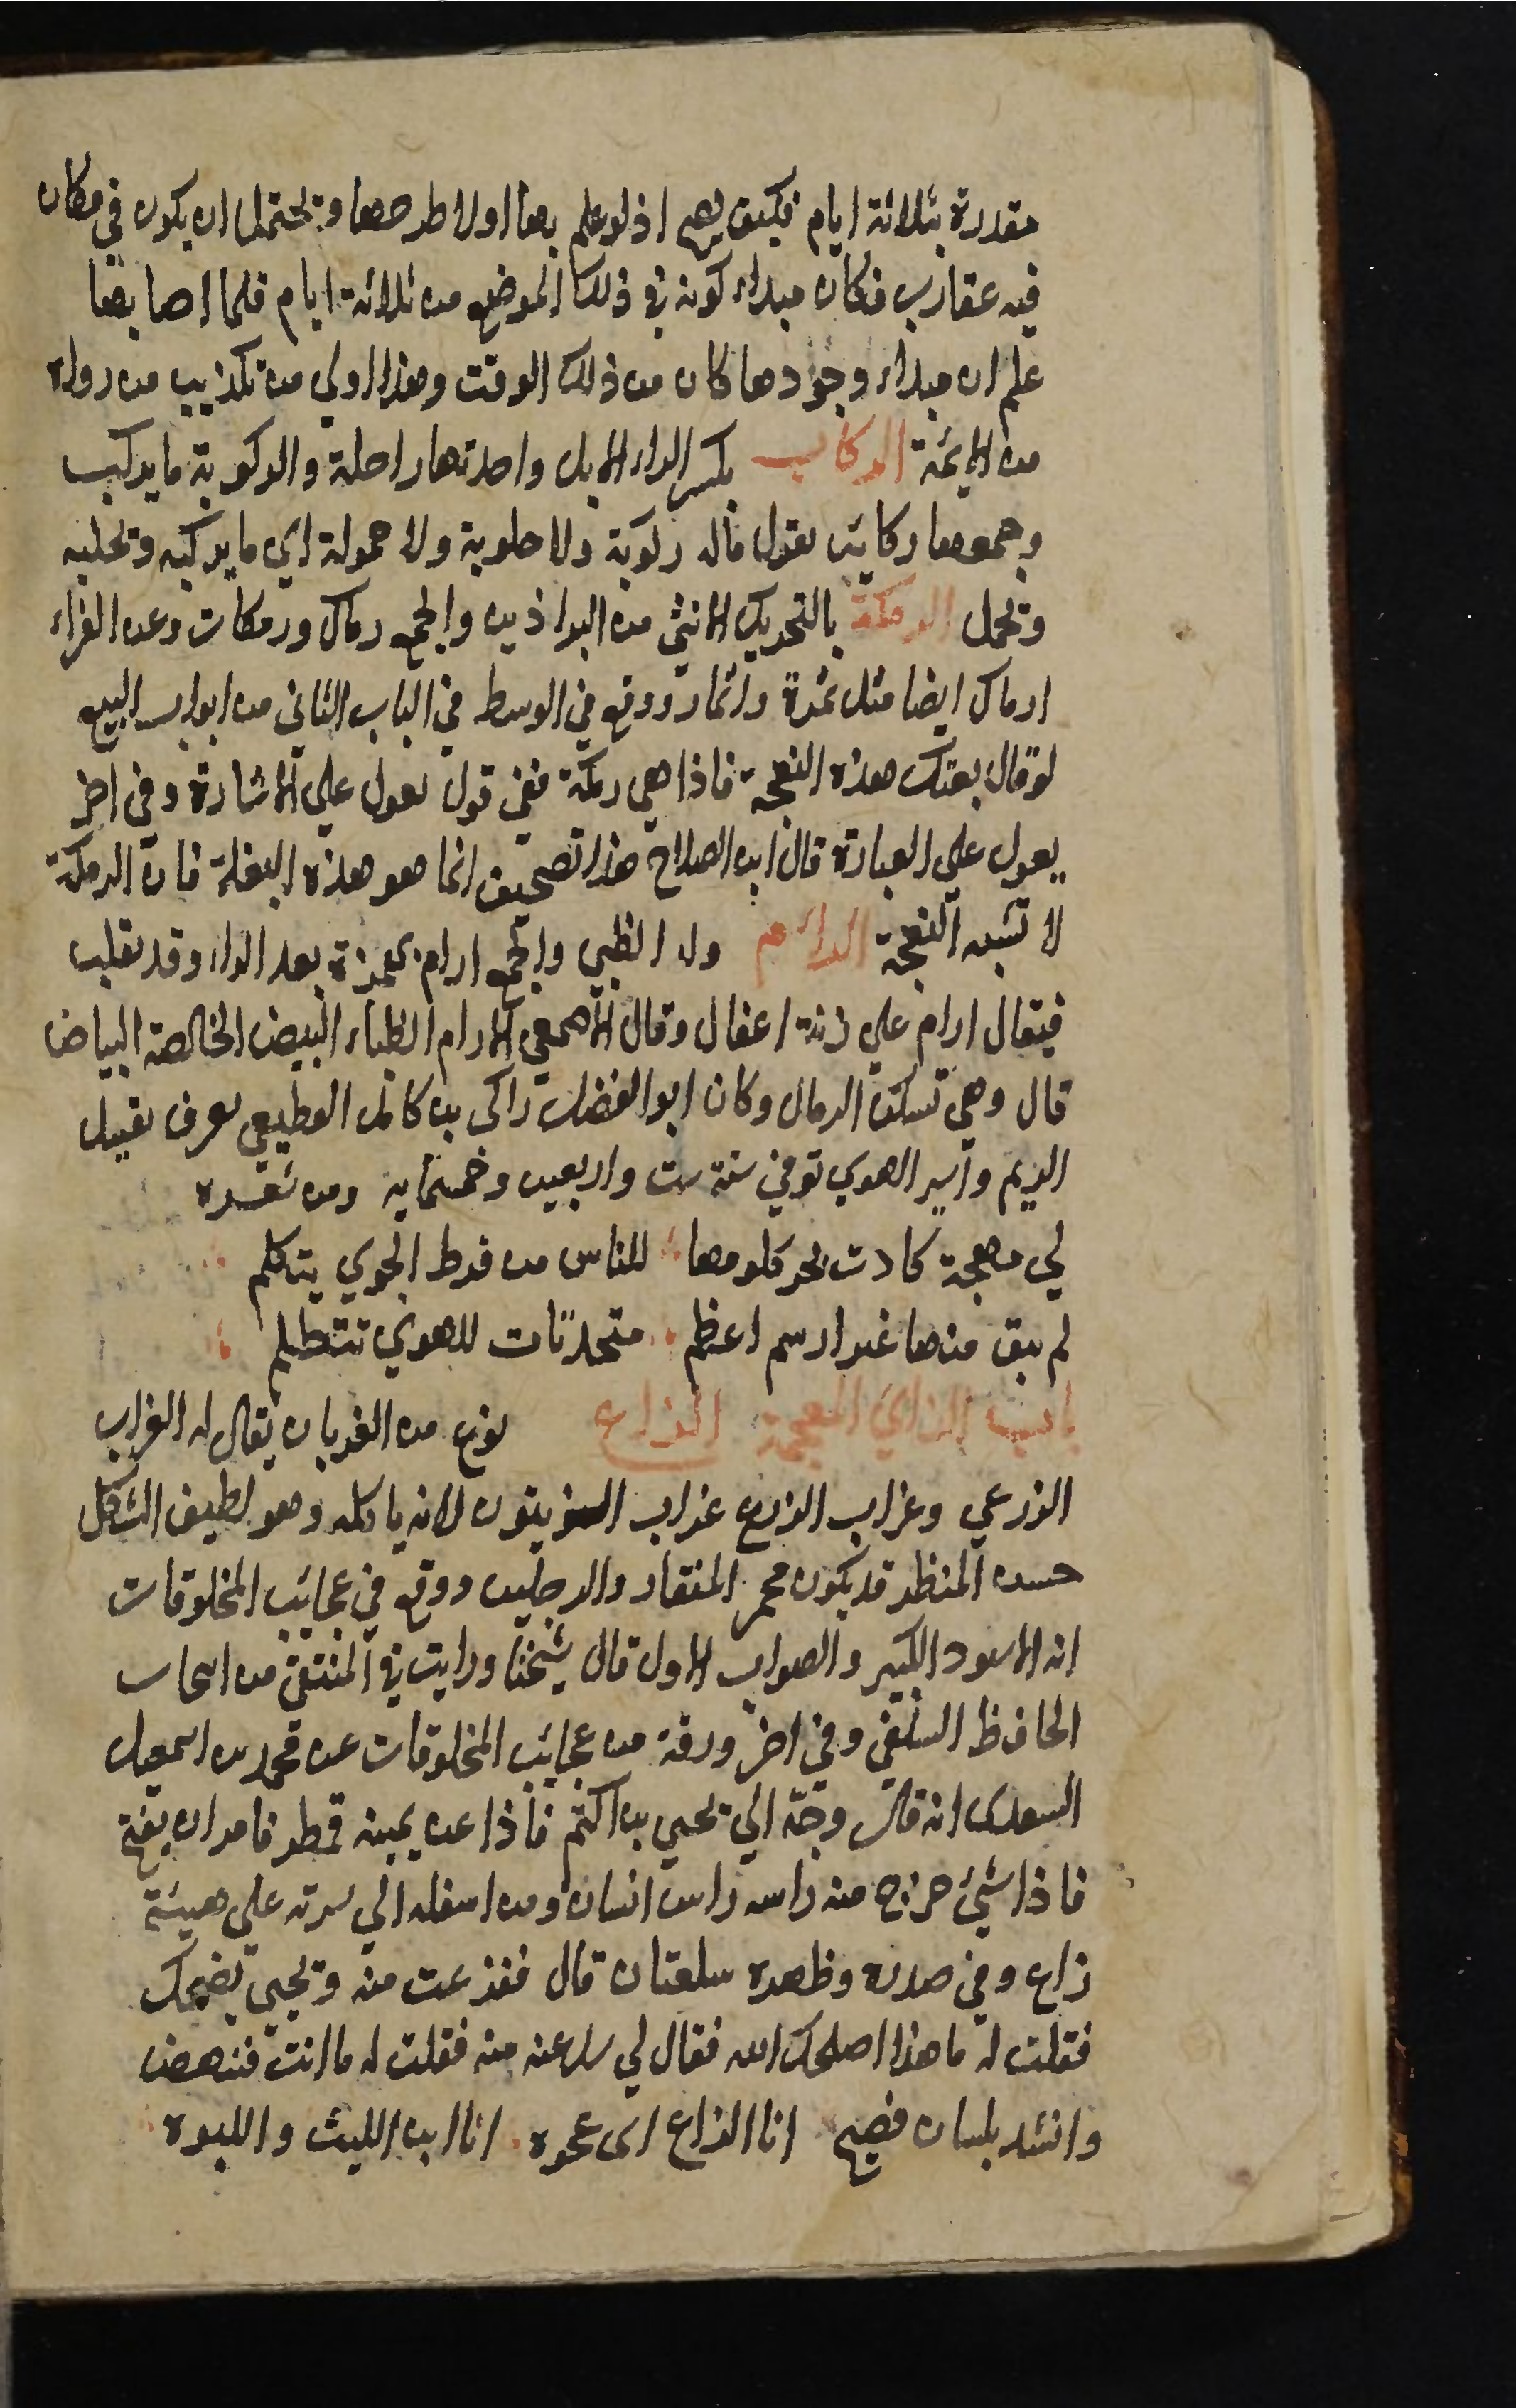 مقدرة بثلاثة ايام فكيف يصح اذ لو علم بها اولا طرحها ويحتمل ان يكون في مكان
فيه عقارب فكان مبداء كونه في ذلك الموضع من ثلاثة ايام فلما اصابها
علم ان مبداء وجودها كان من ذلك الوقت وهذا اولي من تكذيب من رواه
من الايمة الركاب بكسر الراء الابل واحدتها راحلة والركوبة ما يركب
وجمعها ركايب يقول ماله ركوبة ولا حلوبة ولا حمولة اي ما يركبه ويحلبه
ويحمل الرمكة بالتحريك الانثي من البراذين والجمع رماك ورمكات وعن الفراء
ارماك ايضا مثل ثمرة واثمار ووقع في الوسط في الباب الثاني من ابواب البيع
لو قال بعتك هذه النعجة فاذا هي رمكة ففي قول يعول علي الاشارة وفي اخر
يعول علي العبارة قال ابن الصلاح هذا تصحيف انما هو هذه البغلة فان الرمكة
لا تشبه النعجة الرائم ولد الظبي والجمع ارام بهمزة بعد الراء وقد تقلب
فيقال ارام علي زنة اعفال وقال الاصمعي الارام الظباء البيض الخالصة البياض
قال وهي تسكن الرمال وكان ابو الفضل زاكي بن كامل القطيعي يعرف بقتيل
الريم واسير الهوي توفي سنة ست واربعين وخمسماية ومن شعره
لي مهجة كادت بحر كلومها للناس من فرط الجوي يتكلم
لم يبق منها غير ارسم اعظم متحدثات للهوي تتظلم
باب الزاي المعجمة الزاغ نوع من الغربان يقال له الغراب
الزرعي وغراب الزرع غراب الزيتون لانه ياكله وهو لطيف الشكل
حسن المنظر قد يكون محمر المنقار والرجلين ووقع في عجايب المخلوقات
انه الاسود الكبير والصواب الاول قال شيخنا ورايت في المنتقي من انتخاب
الحافظ السلفي وفي اخر ورقة من عجايب المخلوقات عن محمد بن اسمعيل
السعدي انه قال وجّه الي يحيي بن اكثم فاذا عن يمينه قمطر فامر ان يفتح
فاذا شيئ خرج منه راسه راس انسان ومن اسفله الي سرته علي هيئة
زاغ وفي صدره وظهره سلعتان قال ففزعت منه ويحيي يضحك
فقلت له ما هذا اصلحك الله فقال لي سل عنه منه فقلت له ما انت فنهض
وانشد بلسان فصيح انا الزاغ ابي عجوه انا ابن الليث واللبوه